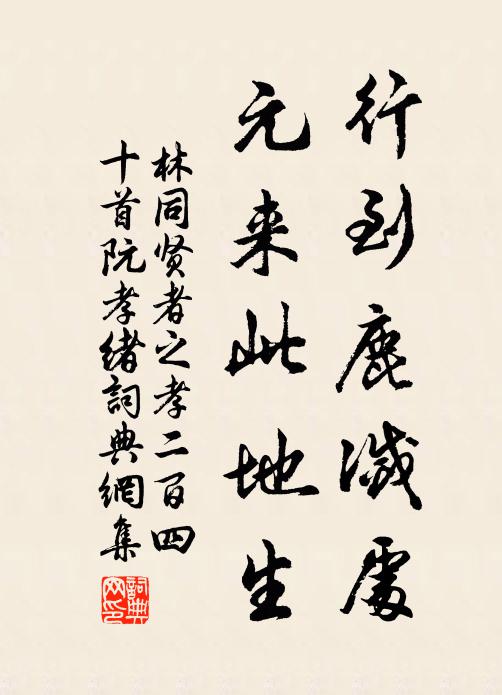 行到鹿滅處
元来此地生
林同贤者之孝二百四
十首阮孝绪詞典網集
詞典网印